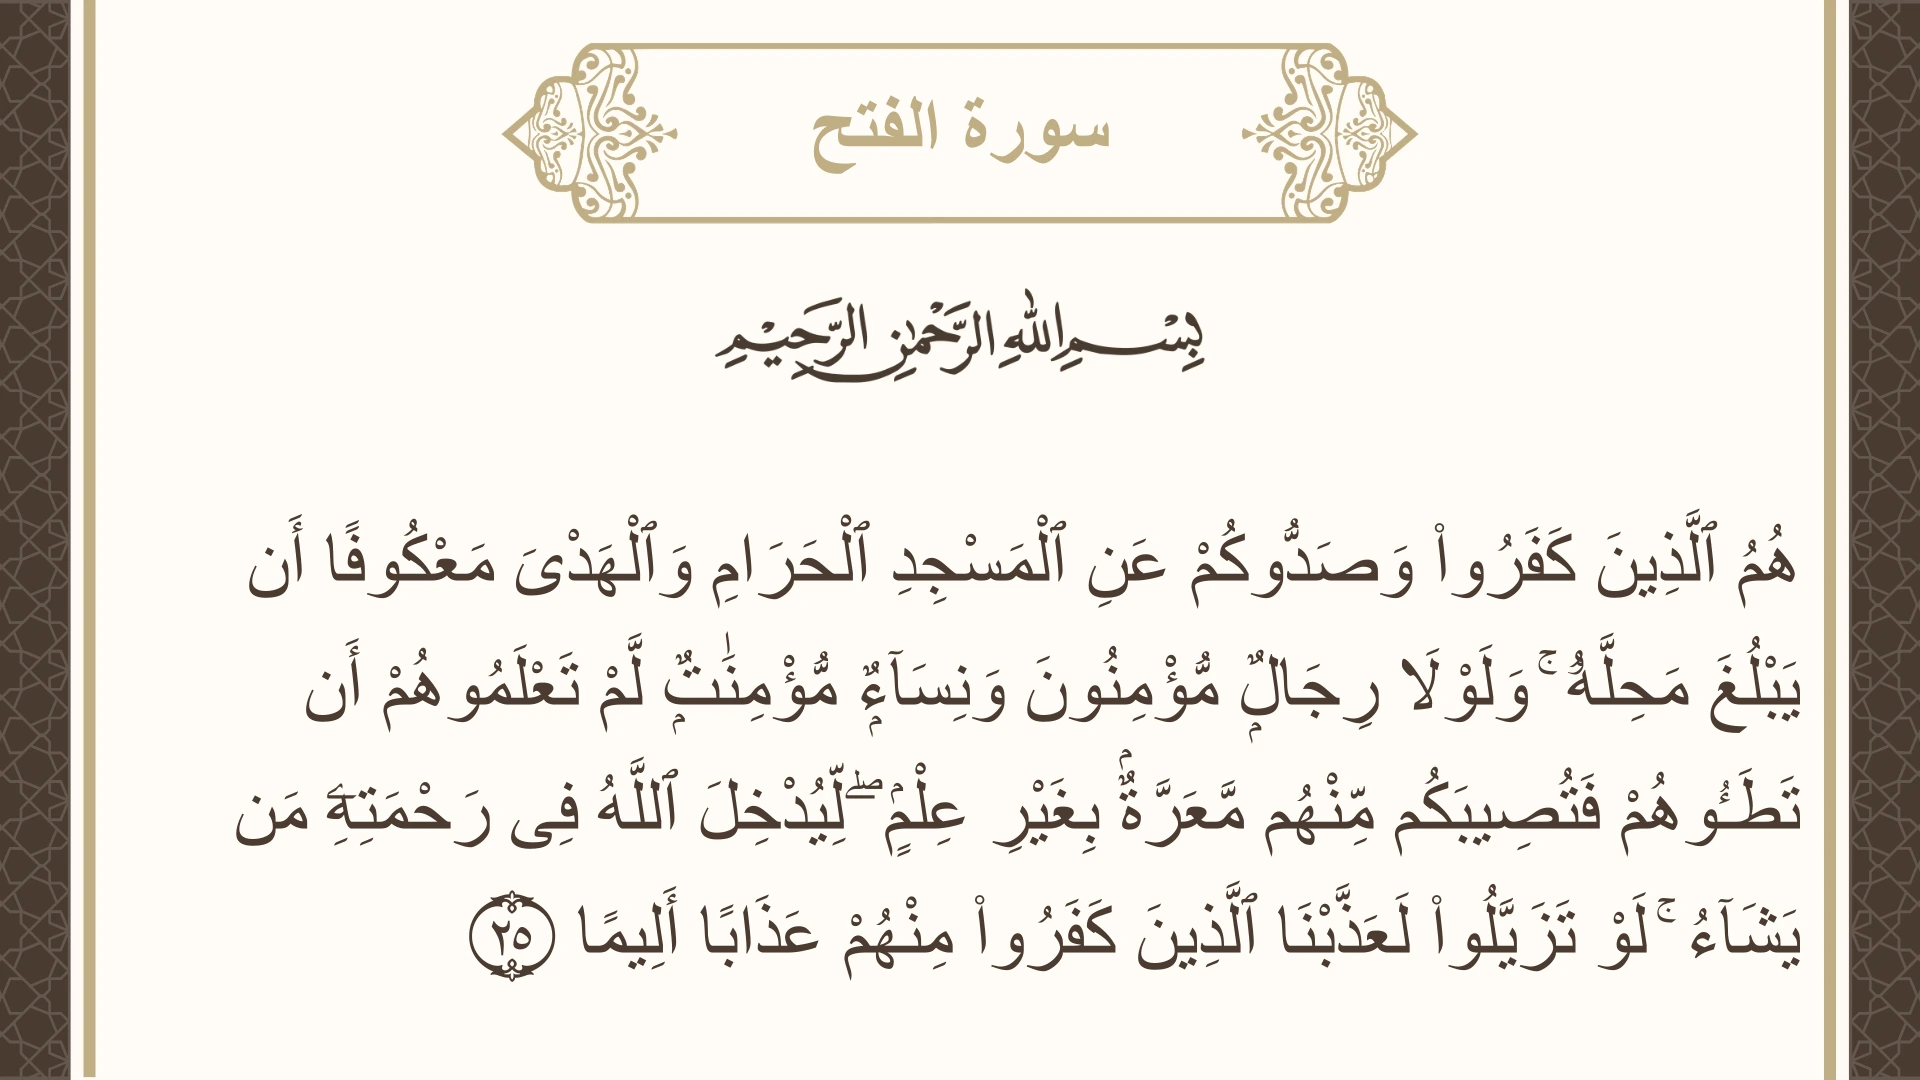 سورة الفتح
بِسْمِ اللهِ الرَّحْمٰنِ الرَّحِيْمِ
هُمُ ٱلَّذِينَ كَفَرُوا۟ وَصَدُّوكُمْ عَنِ ٱلْمَسْجِدِ ٱلْحَرَامِ وَٱلْهَدْىَ مَعْكُوفًا أَن
يَبْلُغَ مَحِلَّهُۥ ۚ وَلَوْلَا رِجَالٌ مُّؤْمِنُونَ وَنِسَآءٌ مُّؤْمِنَٰتٌ لَّمْ تَعْلَمُوهُمْ أَن
تَطَـُٔوهُمْ فَتُصِيبَكُم مِّنْهُم مَّعَرَّةٌۢ بِغَيْرِ عِلْمٍ ۖ لِّيُدْخِلَ ٱللَّهُ فِى رَحْمَتِهِۦ مَن
يَشَآءُ ۚ لَوْ تَزَيَّلُوا۟ لَعَذَّبْنَا ٱلَّذِينَ كَفَرُوا۟ مِنْهُمْ عَذَابًا أَلِيمًا ٢٥